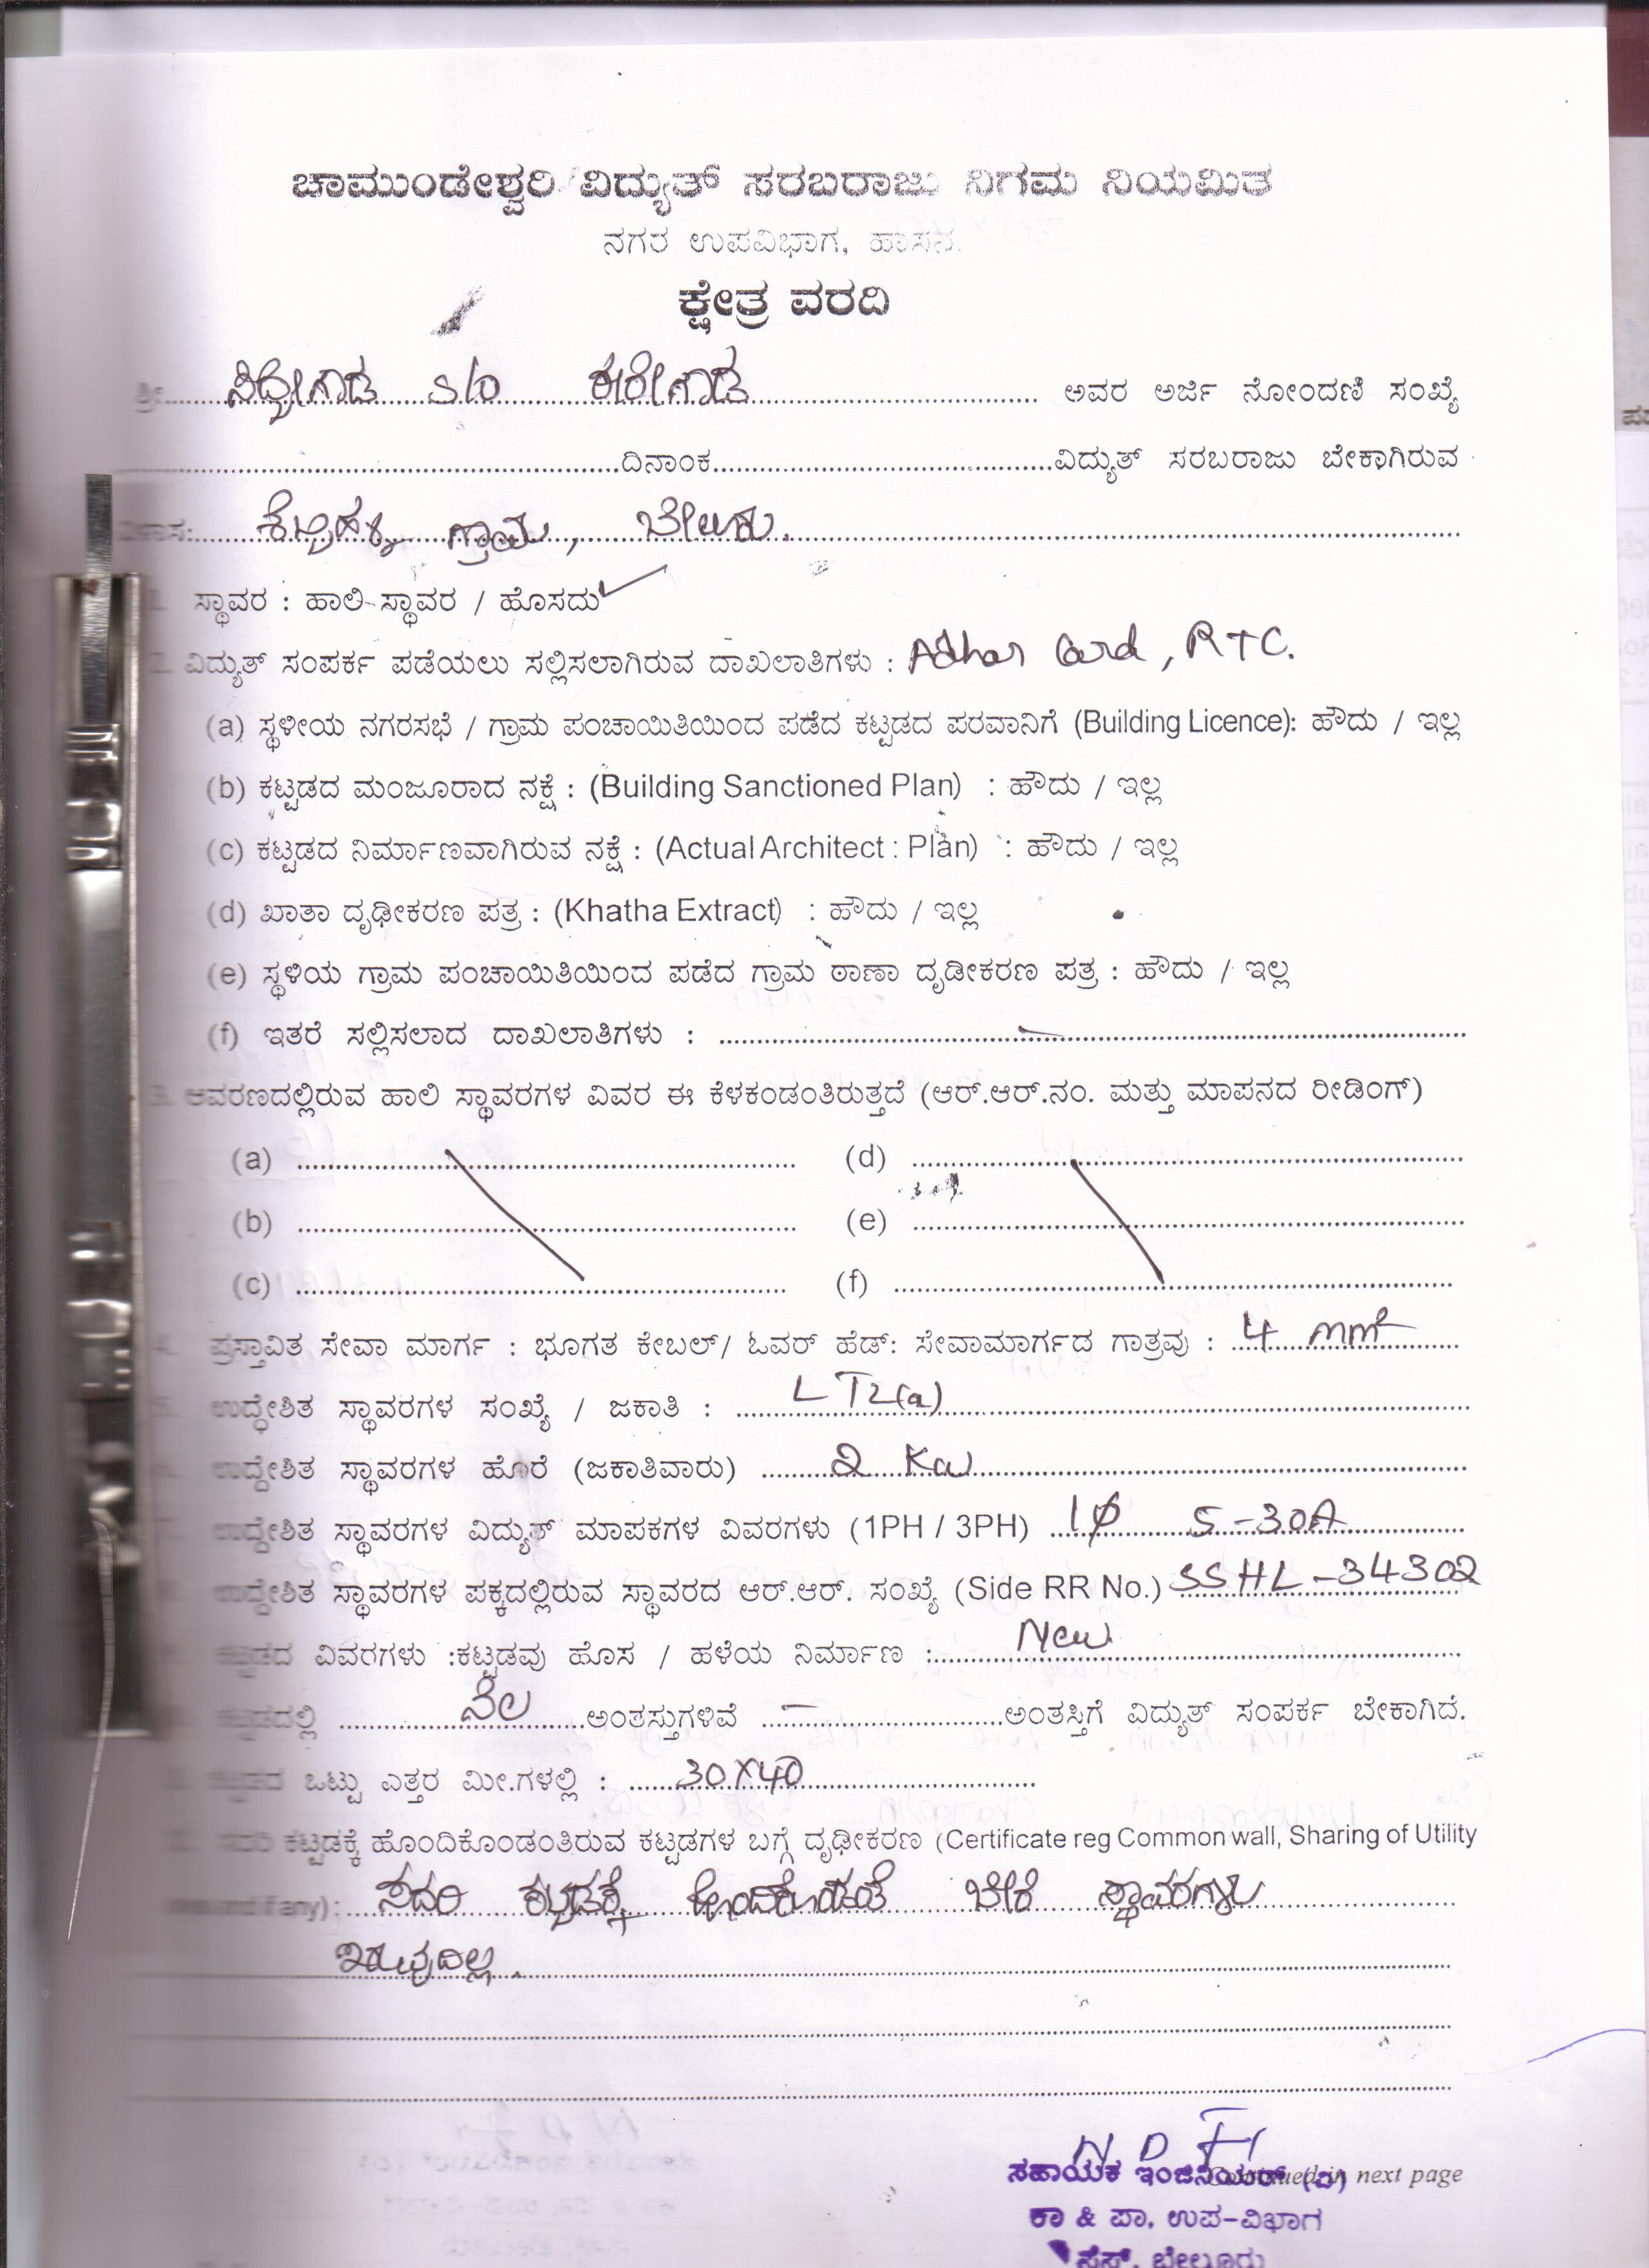 ಚಾಮುಂಡೇಶ್ವರಿ ವಿದ್ಯುತ್ ಸರಬರಾಜು ನಿಗಮ ನಿಯಮಿತ
ನಗರ ಉಪವಿಭಾಗ, ಹಾಸನ.
ಕ್ಷೇತ್ರ ವರದಿ
ಶ್ರೀ. ಸಿದ್ದೇಗೌಡ S/o ಕರೀಗೌಡ ಅವರ ಅರ್ಜಿ ನೋಂದಣಿ ಸಂಖ್ಯೆ
ದಿನಾಂಕ ವಿದ್ಯುತ್ ಸರಬರಾಜು ಬೇಕಾಗಿರುವ
ವಿಳಾಸ: ಗ್ರಾಮ, ಬೇಲೂರು.
1. ಸ್ಥಾವರ : ಹಾಲಿ-ಸ್ಥಾವರ / ಹೊಸದು
2. ವಿದ್ಯುತ್ ಸಂಪರ್ಕ ಪಡೆಯಲು ಸಲ್ಲಿಸಲಾಗಿರುವ ದಾಖಲಾತಿಗಳು : Adhar Card, RTC.
(a) ಸ್ಥಳೀಯ ನಗರಸಭೆ / ಗ್ರಾಮ ಪಂಚಾಯಿತಿಯಿಂದ ಪಡೆದ ಕಟ್ಟಡದ ಪರವಾನಿಗೆ (Building Licence): ಹೌದು / ಇಲ್ಲ
(b) ಕಟ್ಟಡದ ಮಂಜೂರಾದ ನಕ್ಷೆ : (Building Sanctioned Plan) : ಹೌದು / ಇಲ್ಲ
(c) ಕಟ್ಟಡದ ನಿರ್ಮಾಣವಾಗಿರುವ ನಕ್ಷೆ : (Actual Architect : Plan) : ಹೌದು / ಇಲ್ಲ
(d) ಖಾತಾ ದೃಢೀಕರಣ ಪತ್ರ : (Khatha Extract) : ಹೌದು / ಇಲ್ಲ
(e) ಸ್ಥಳಿಯ ಗ್ರಾಮ ಪಂಚಾಯಿತಿಯಿಂದ ಪಡೆದ ಗ್ರಾಮ ಠಾಣಾ ದೃಡೀಕರಣ ಪತ್ರ : ಹೌದು / ಇಲ್ಲ
(f) ಇತರೆ ಸಲ್ಲಿಸಲಾದ ದಾಖಲಾತಿಗಳು : —
3. ಆವರಣದಲ್ಲಿರುವ ಹಾಲಿ ಸ್ಥಾವರಗಳ ವಿವರ ಈ ಕೆಳಕಂಡಂತಿರುತ್ತದೆ (ಆರ್.ಆರ್.ನಂ. ಮತ್ತು ಮಾಪನದ ರೀಡಿಂಗ್)
(a) (d)
(b) (e)
(c) (f)
4. ಪ್ರಸ್ತಾವಿತ ಸೇವಾ ಮಾರ್ಗ : ಭೂಗತ ಕೇಬಲ್/ ಓವರ್ ಹೆಡ್: ಸೇವಾಮಾರ್ಗದ ಗಾತ್ರವು : 4 mm²
5. ಉದ್ಧೇಶಿತ ಸ್ಥಾವರಗಳ ಸಂಖ್ಯೆ / ಜಕಾತಿ : LT2(a)
ಉದ್ದೇಶಿತ ಸ್ಥಾವರಗಳ ಹೊರೆ (ಜಕಾತಿವಾರು) 2 Kw
7. ಉದ್ದೇಶಿತ ಸ್ಥಾವರಗಳ ವಿದ್ಯುತ್ ಮಾಪಕಗಳ ವಿವರಗಳು (1PH / 3PH) 1φ 5-30A
ಉದ್ದೇಶಿತ ಸ್ಥಾವರಗಳ ಪಕ್ಕದಲ್ಲಿರುವ ಸ್ಥಾವರದ ಆರ್.ಆರ್. ಸಂಖ್ಯೆ (Side RR No.) SSHL-34302
ಕಟ್ಟಡದ ವಿವರಗಳು :ಕಟ್ಟಡವು ಹೊಸ / ಹಳೆಯ ನಿರ್ಮಾಣ : New
ಕಟ್ಟಡದಲ್ಲಿ ನೆಲ ಅಂತಸ್ತುಗಳಿವೆ — ಅಂತಸ್ತಿಗೆ ವಿದ್ಯುತ್ ಸಂಪರ್ಕ ಬೇಕಾಗಿದೆ.
ಕಟ್ಟಡದ ಒಟ್ಟು ಎತ್ತರ ಮೀ.ಗಳಲ್ಲಿ : 30X40
ಸದರಿ ಕಟ್ಟಡಕ್ಕೆ ಹೊಂದಿಕೊಂಡಂತಿರುವ ಕಟ್ಟಡಗಳ ಬಗ್ಗೆ ದೃಢೀಕರಣ (Certificate reg Common wall, Sharing of Utility
and if any) : ಸದರಿ ಕಟ್ಟಡಕ್ಕೆ ಹೊಂದಿಕೊಂಡಂತೆ ಬೇರೆ ಸ್ಥಾವರಗಳು
ಇರುವುದಿಲ್ಲ.
ಸಹಾಯಕ ಇಂಜಿನಿಯರ್ (ವಿ)
Continued in next page
ಕಾ & ಪಾ, ಉಪ-ವಿಭಾಗ
ಸೆಸ್, ಬೇಲೂರು